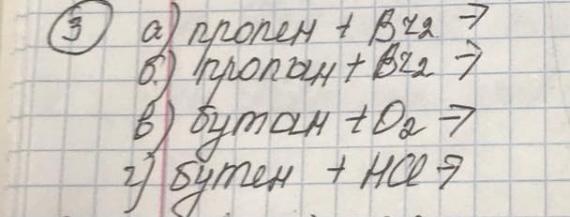 3 а) пропен + Br2 →
б) пропан + Br2 →
в) бутан + O2 →
г) бутен + HCl →